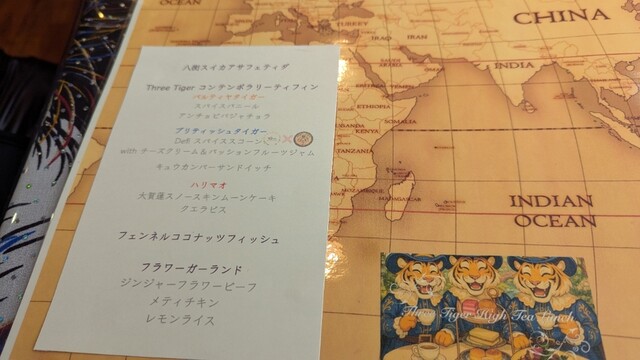 八街スイカアサフェティダ
Three Tiger コンテンポラリーティフィン
バルティヤタイガー
スパイスパニール
アンチョビパジャチョラ
ブリティッシュタイガー
Deli スパイススコーン
with チーズクリーム＆パッションフルーツジャム
キュウカンバーサンドイッチ
ハリマオ
大賀蓮スノースキンムーンケーキ
クエラピス
フェンネルココナッツフィッシュ
フラワーガーランド
ジンジャーフラワービーフ
メティチキン
レモンライス
OCEAN
TURKEY
IRAQ
IRAN
CHINA
SAUDI
ARABIA
INDIA
ETHIOPIA
SOMALIA
UGANDA
KENYA
TANZANIA
MOZAMBIQUE
MADAGASCAR
INDIAN
OCEAN
Three Tiger High Tea Lunch